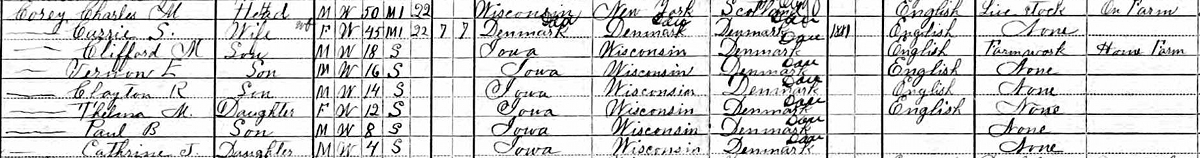 Corey Charles M Head M W 50 M1 22 Wisconsin New York Scotland English Live stock On Farm
— Carrie S. Wife F W 45 M1 22 7 7 Denmark Dan Denmark Dan Denmark Dan 1881 English None
— Clifford M Son M W 18 S Iowa Wisconsin Denmark Dan English Farmwork Home Farm
— Vernon E Son M W 16 S Iowa Wisconsin Denmark Dan English None
— Clayton R Son M W 14 S Iowa Wisconsin Denmark Dan English None
— Thelma M. Daughter F W 12 S Iowa Wisconsin Denmark Dan English None
— Paul B Son M W 8 S Iowa Wisconsin Denmark Dan None
— Cathrine J Daughter M W 4 S Iowa Wisconsin Denmark Dan None